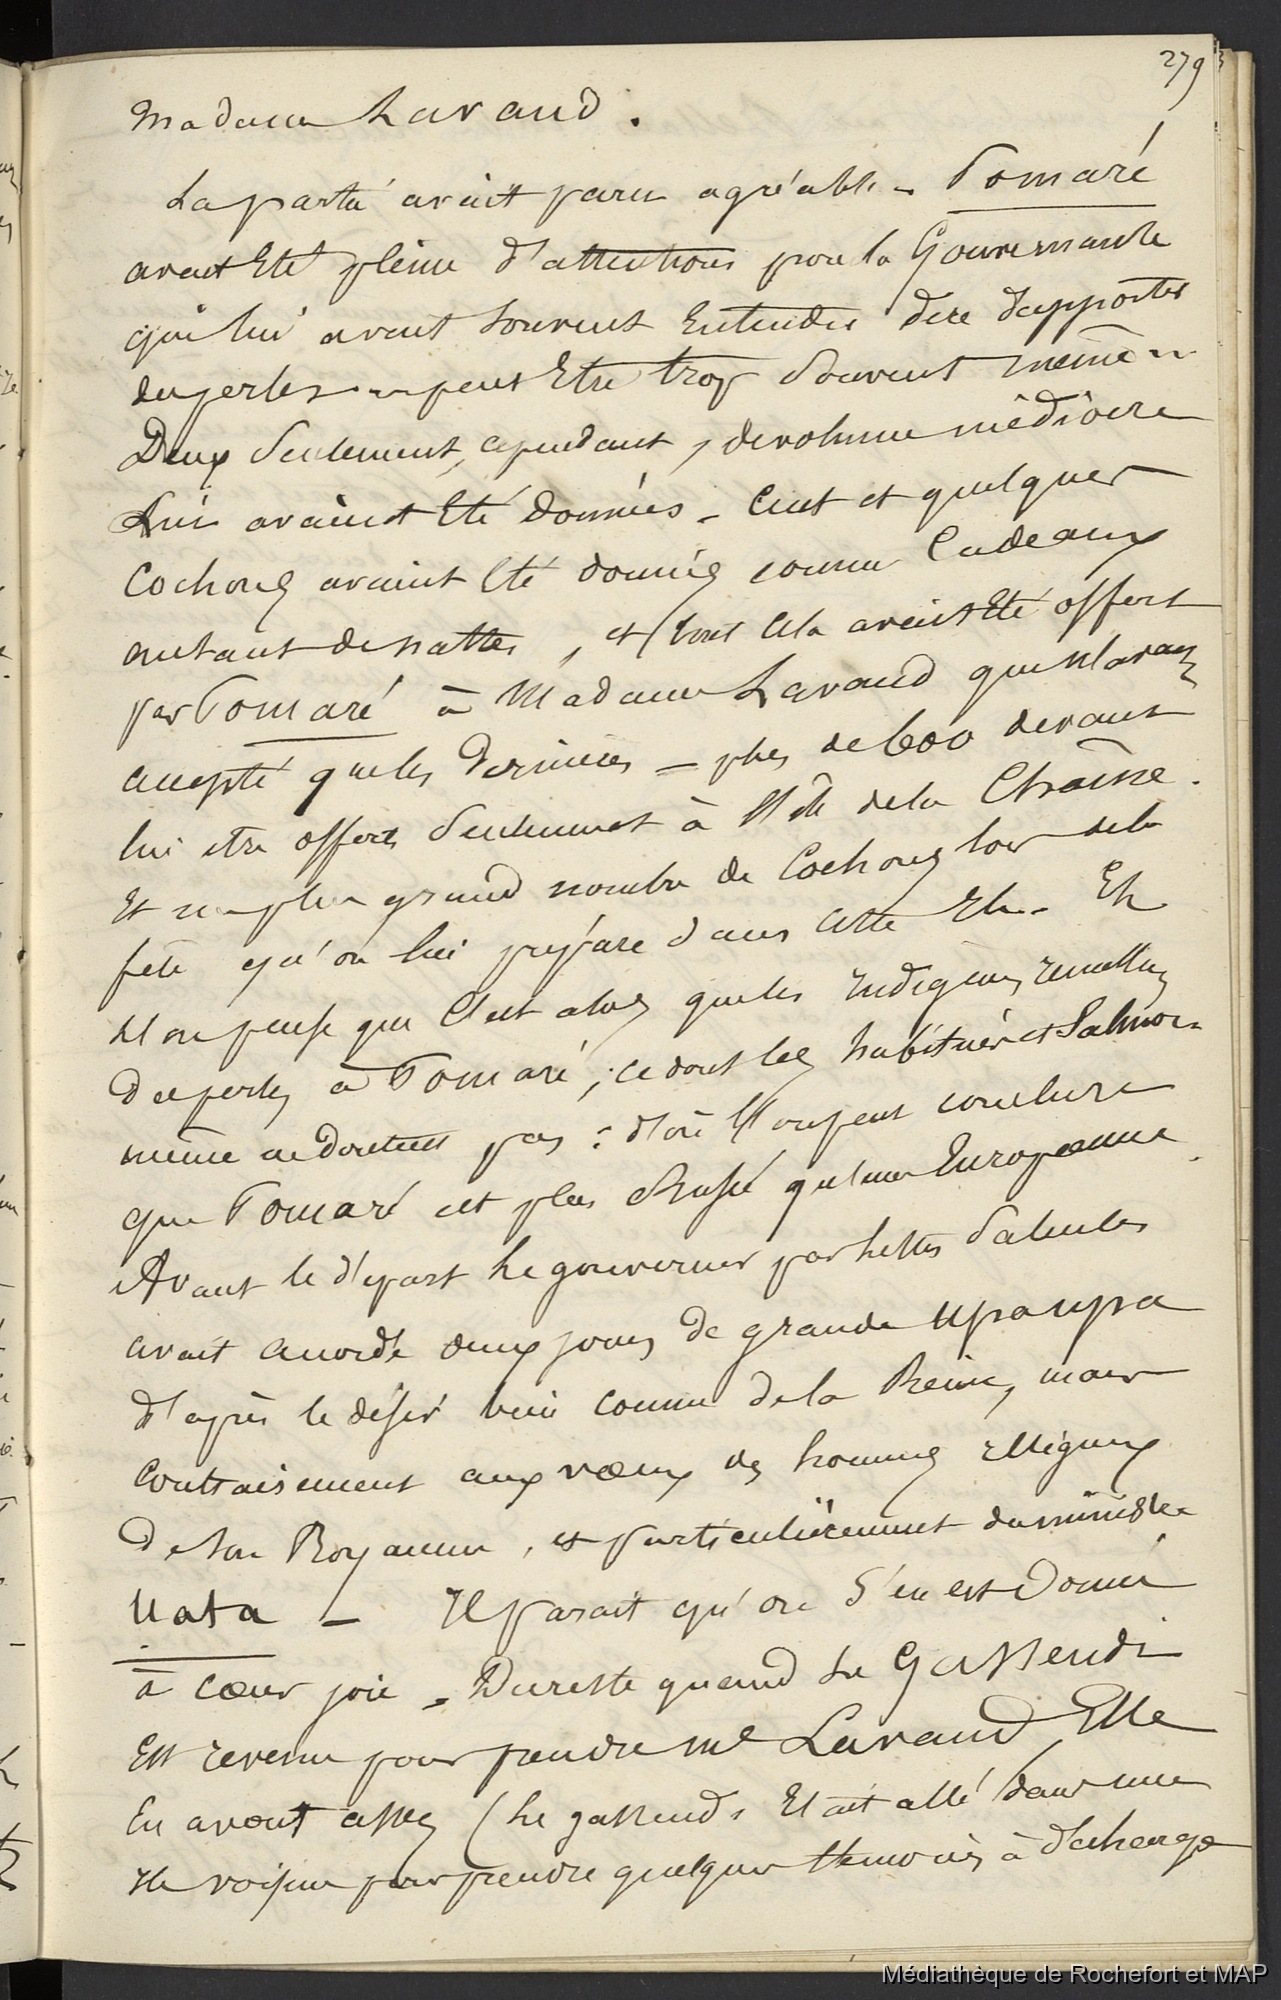 279
Madame Lavaud.
La partie avait paru agréable - Pomaré
avait Eté pleine d'attentions pour la Gouvernante
qui lui avait souvent Entendu dire d'apporter
des perles - peut Etre trop souvent même -
Deux seulement, cependant, de volume médiocre
lui avaient Eté données - Cent et quelques
Cochons avaient Eté donnés comme Cadeaux
autant de nattes, et tout cela avait Eté offert
par Pomaré à Madame Lavaud qui n'avait
accepté que les dernières - plus de 600 devant
lui etre offerts seulement à l'Ile de la Chaine.
Et un plus grand nombre de Cochons lors de la
fête qu'on lui prépare dans cette Ile. Eh
l'on pense que c'est alors que les indigènes remettent
des perles à Pomaré, ce dont les habitués et Salmon
même ne doutent pas : d'où l'on peut conclure
que Pomaré est plus rusée qu'une Européenne.
Avant le départ le gouverneur par lettres
avait accordé deux jours de grande upa upa
d'après le désir bien connu de la Reine, mais
contrairement aux vœux des hommes religieux
de son Royaume, et particulièrement du ministre
Uata - Il parait qu'on s'en est donné
à cœur joie - Du reste quand Le Gassendi
Est revenu pour prendre Me Lavaud, Elle
En avait assez (Le gassendi Etait allé dans une
Ile voisine pour prendre quelques témoins à décharge
Médiathèque de Rochefort et MAP